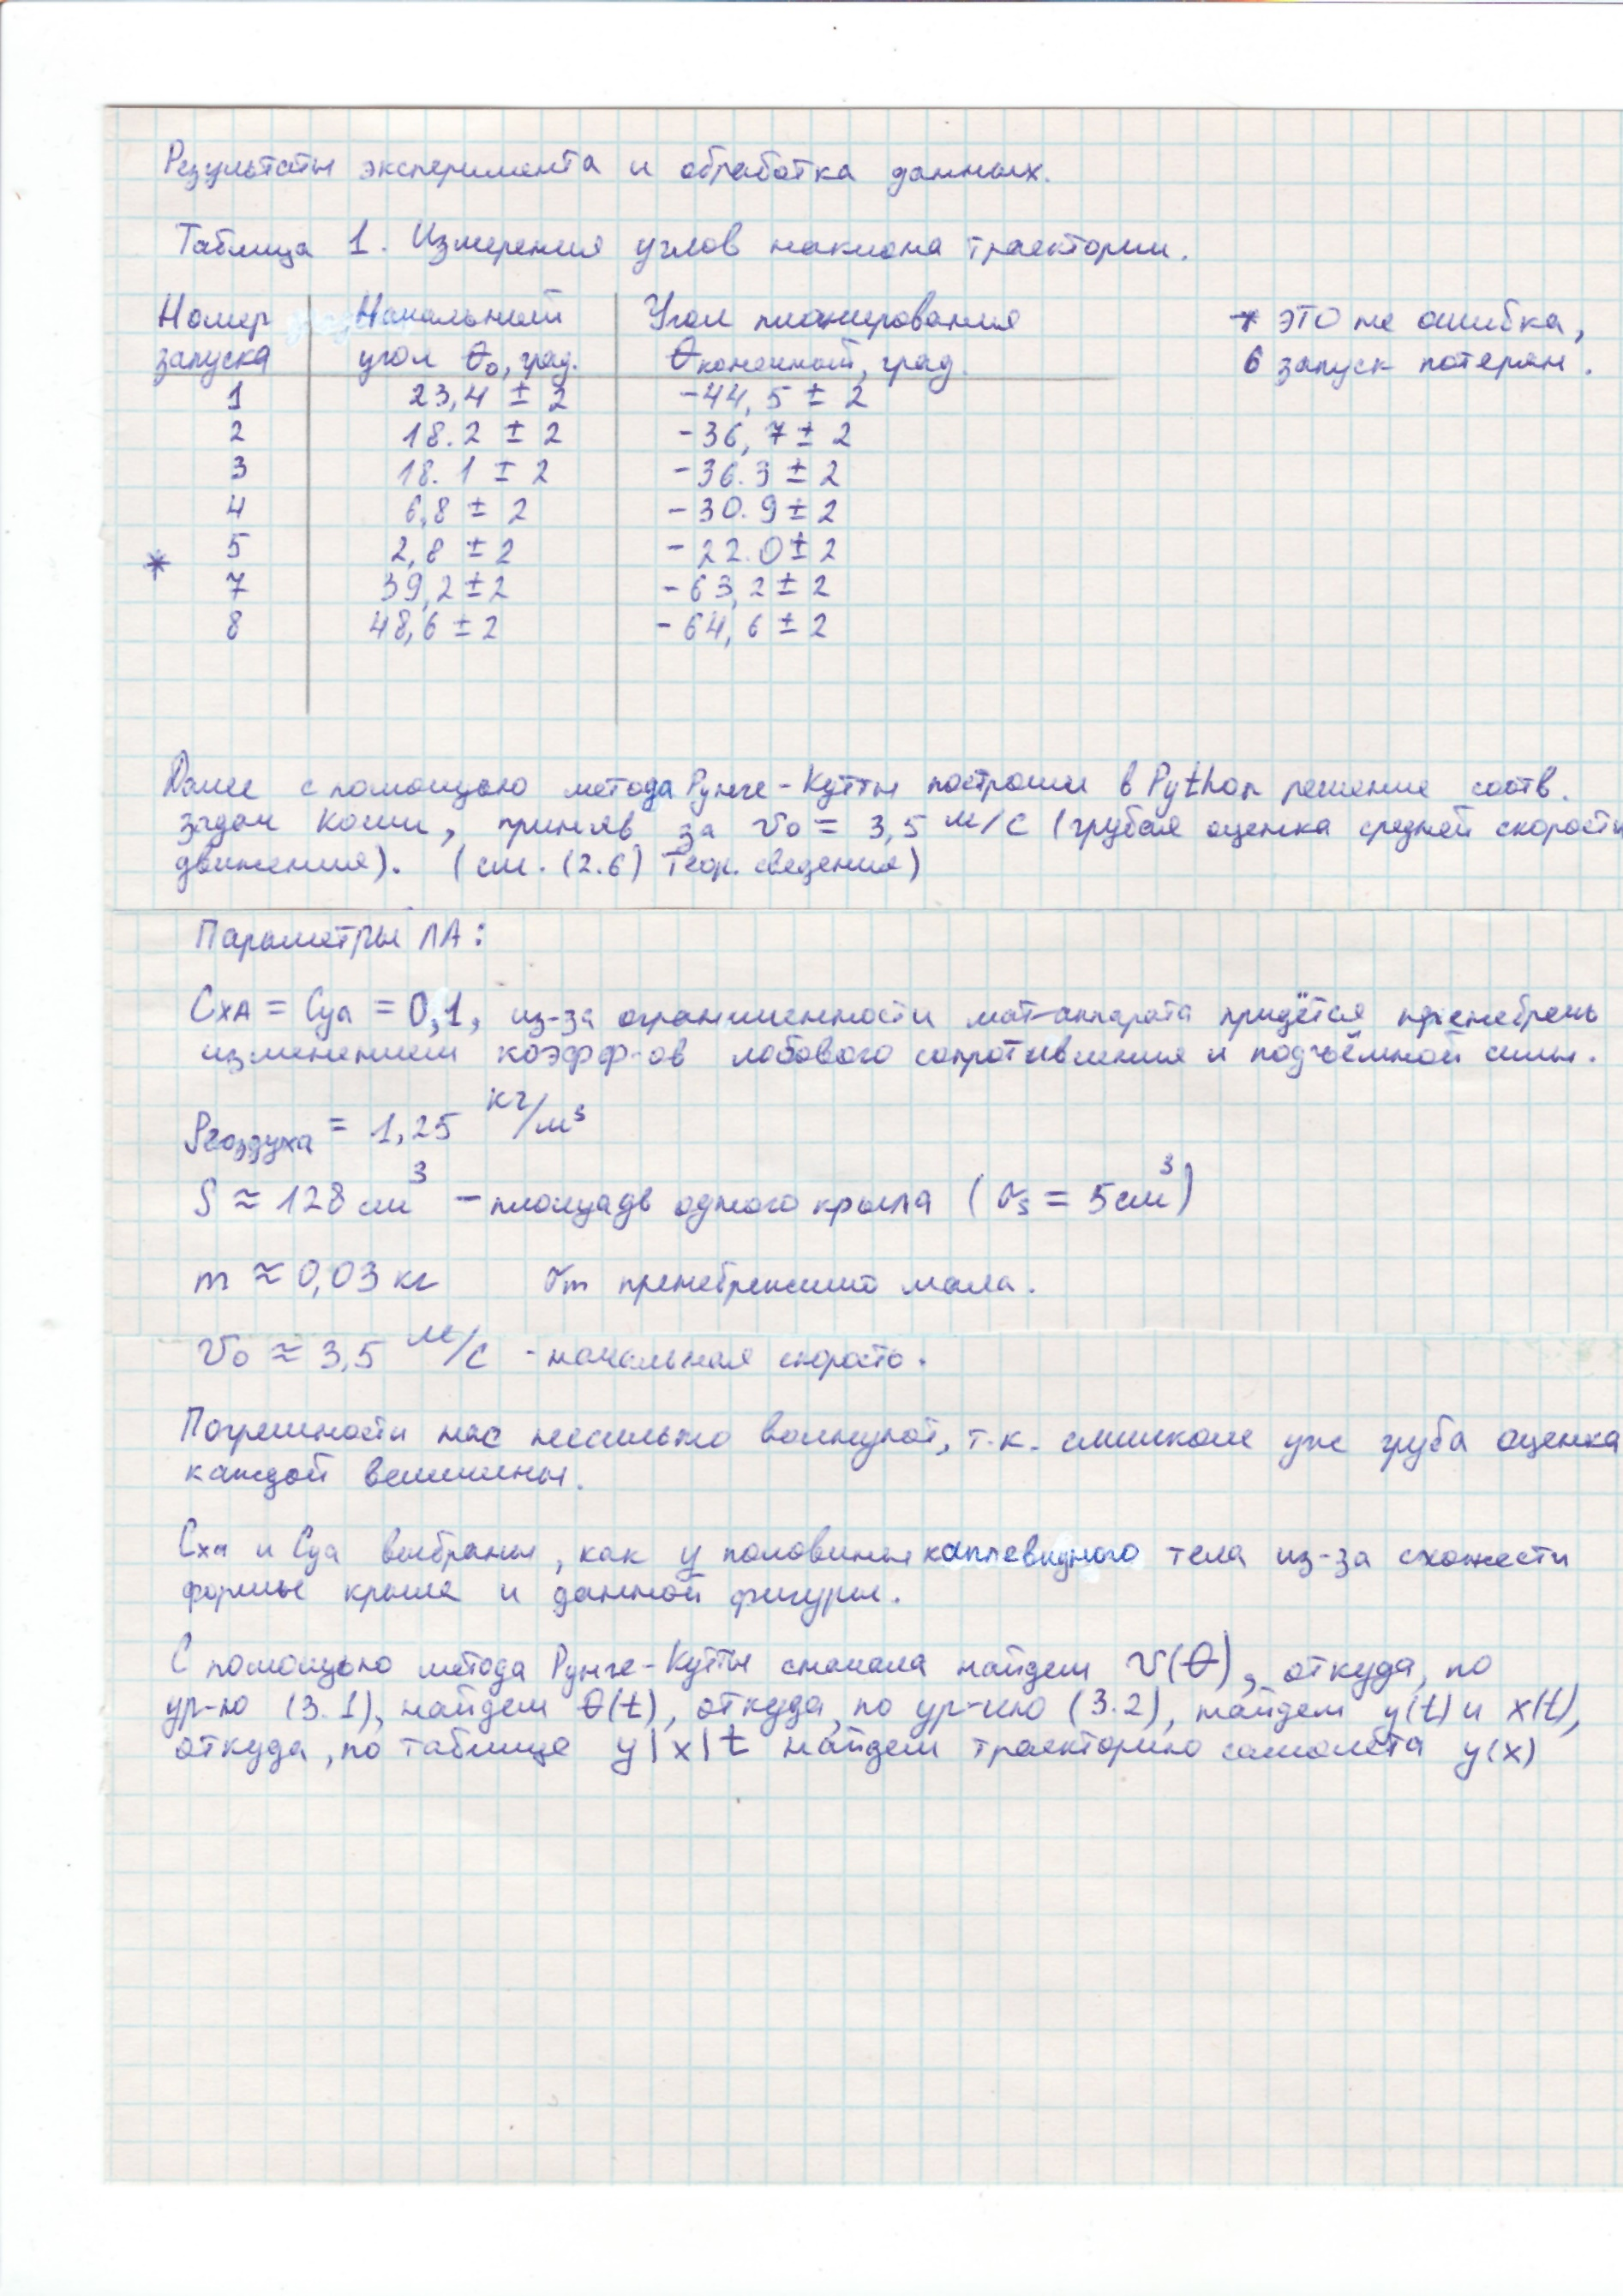 Результаты эксперимента и обработка данных.
Таблица 1. Измерения углов наклона траектории.
Номер запуска | Начальный угол θ₀, град. | Угол планирования θконечный, град.
1 | 23,4 ± 2 | -44,5 ± 2
2 | 18.2 ± 2 | -36,7 ± 2
3 | 18.1 ± 2 | -36.3 ± 2
4 | 6,8 ± 2 | -30.9 ± 2
5 | 2,8 ± 2 | -22.0 ± 2
*
7 | 39,2 ± 2 | -63,2 ± 2
8 | 48,6 ± 2 | -64,6 ± 2
* это не ошибка,
6 запуск потерян.
Далее с помощью метода Рунге-Кутты построим в Python решение соотв.
задач Коши, приняв за v₀ = 3,5 м/с (грубая оценка средней скорости
движения). (см. (2.6) Теор. сведения)
Параметры ЛА:
Cxa = Cya = 0,1, из-за ограниченности мат-аппарата придётся пренебречь
изменением коэфф-ов лобового сопротивления и подъёмной силы.
ρвоздуха = 1,25 кг/м³
S ≈ 128 см³ - площадь одного крыла (σs = 5 см³)
m ≈ 0,03 кг σm пренебрежимо мала.
v₀ ≈ 3,5 м/с - начальная скорость.
Погрешности нас несильно волнуют, т.к. слишком уж груба оценка
каждой величины.
Cxa и Cya выбраны, как у половины каплевидного тела из-за схожести
формы крыла и данной фигуры.
С помощью метода Рунге-Кутты сначала найдем v(θ), откуда, по
ур-ю (3.1), найдем θ(t), откуда, по ур-ию (3.2), найдем y(t) и x(t),
откуда, по таблице y|x|t найдем траекторию самолёта y(x)